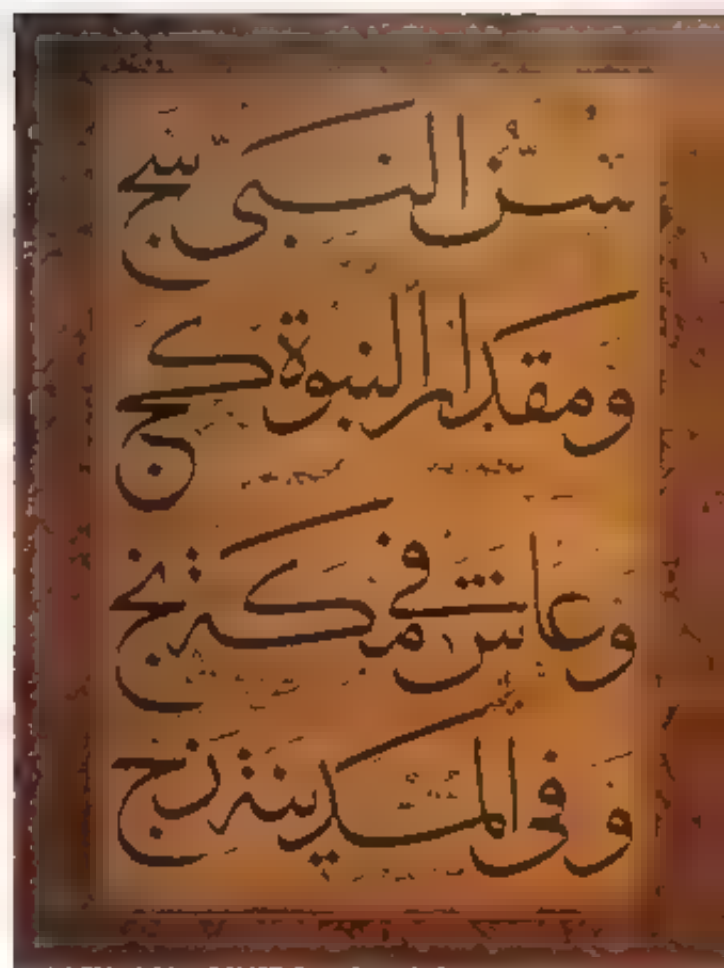 سِنّ النبى سج
ومقدار النبوة كج
وعاش فى مكة نج
وفى المدينة زج